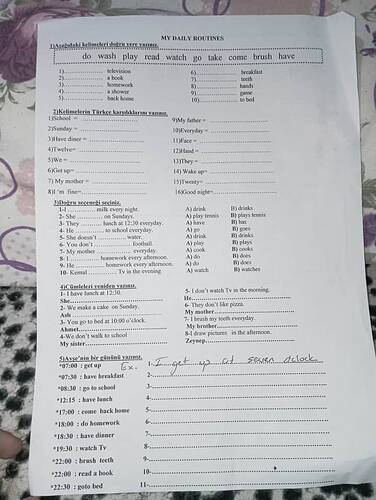 MY DAILY ROUTINES
1)Aşağıdaki kelimeleri doğru yere yazınız.
do wash play read watch go take come brush have
1)................ television 6)................ breakfast
2)................ a book 7)................ teeth
3)................ homework 8)................ hands
4)................ a shower 9)................ game
5)................ back home 10)................ to bed
2)Kelimelerin Türkçe karşılıklarını yazınız.
1)School = ................ 9)My father = ................
2)Sunday = ................ 10)Everyday = ................
3)Have diner = ................ 11)Face = ................
4)Twelve= ................ 12)Hand = ................
5)We = ................ 13)They = ................
6)Get up= ................ 14) Wake up= ................
7) My mother = ................ 15)Twenty= ................
8)I ‘m fine=................ 16)Good night=................
3)Doğru seçeneği seçiniz.
1-I ............ milk every night. A) drink B) drinks
2- She ............ on Sundays. A) play tennis B) plays tennis
3- They ........ lunch at 12:30 everyday. A) have B) has
4- He ............ to school everyday. A) go B) goes
5- She doesn’t ............ water. A) drink B) drinks
6- You don’t ............ football. A) play B) plays
7- My mother ............ everyday. A) cook B) cooks
8- I ............ homework every afternoon. A) do B) does
9- He ............ homework every afternoon. A) do B) does
10- Kemal ............ Tv in the evening A) watch B) watches
4)Cümleleri yeniden yazınız.
1- I have lunch at 12:30. 5- I don’t watch Tv in the morning.
She................ He................
2- We make a cake on Sunday. 6- They don’t like pizza.
Aslı................ My mother................
3- You go to bed at 10:00 o’clock. 7- I brush my teeth everyday.
Ahmet................ My brother................
4-We don’t walk to school 8-I draw pictures in the afternoon.
My sister................ Zeynep................
5)Ayşe’nin bir gününü yazınız.
*07:00 : get up Ex. 1-I get up at seven o'clock.
*07:30 : have breakfast 2-................
*08:30 : go to school 3-................
*12:15 : have lunch 4-................
*17:00 : come back home 5-................
*18:00 : do homework 6-................
*18:30 : have dinner 7-................
*19:30 : watch Tv 8-................
*22:00 : brush teeth 9-................
*22:00 : read a book 10-................
*22:30 : goto bed 11-................